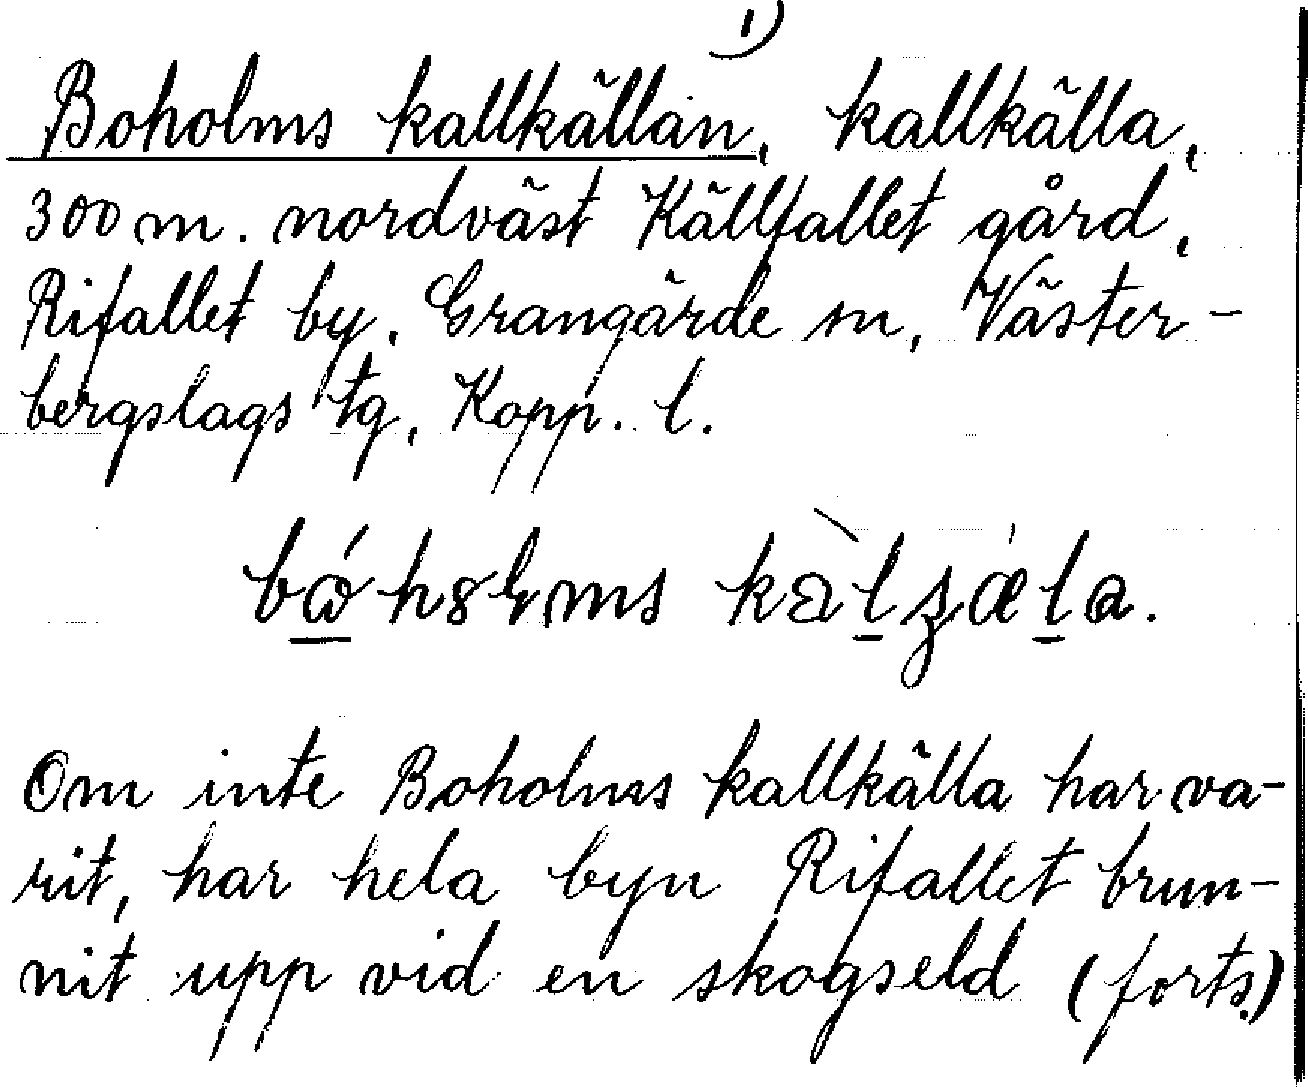 1)
Boholms kallkällan, kallkälla,
300 m. nordväst Källfallet gård,
Rifallet by, Grangärde sn, Väster-
bergslags tg, Kopp. l.
Om inte Boholms kallkälla har va-
rit, har hela byn Rifallet brun-
nit upp vid en skogseld (forts.)